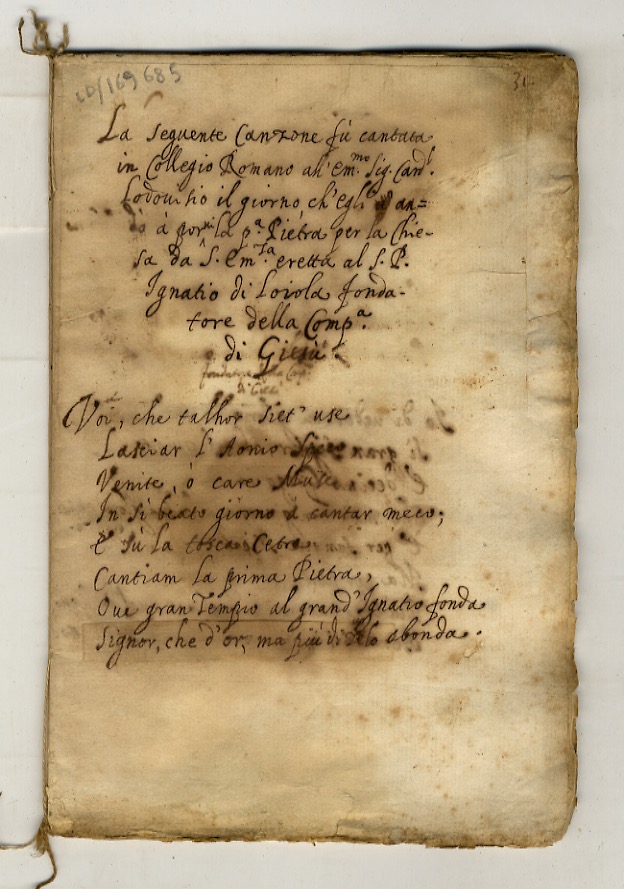 LD/169685
31
La seguente Canzone fù cantata
in Collegio Romano all'em.mo Sig. Card.l
Lodouisio il giorno ch'egli andò
dò à por la p.a Pietra per la Chie-
sa da S. Em.za eretta al S. P.
Ignatio di Loiola fonda-
tore della Comp.a
di Giesù.
Voi, che talhor siet' use
Lasciar l'Aonio speco
Venite, ò care Muse
In sì beato giorno à cantar meco;
E sù la tosca Cetra
Cantiam la prima Pietra,
Oue gran Tempio al grand'Ignatio fonda
Signor, che d'or, ma più di zelo abonda.